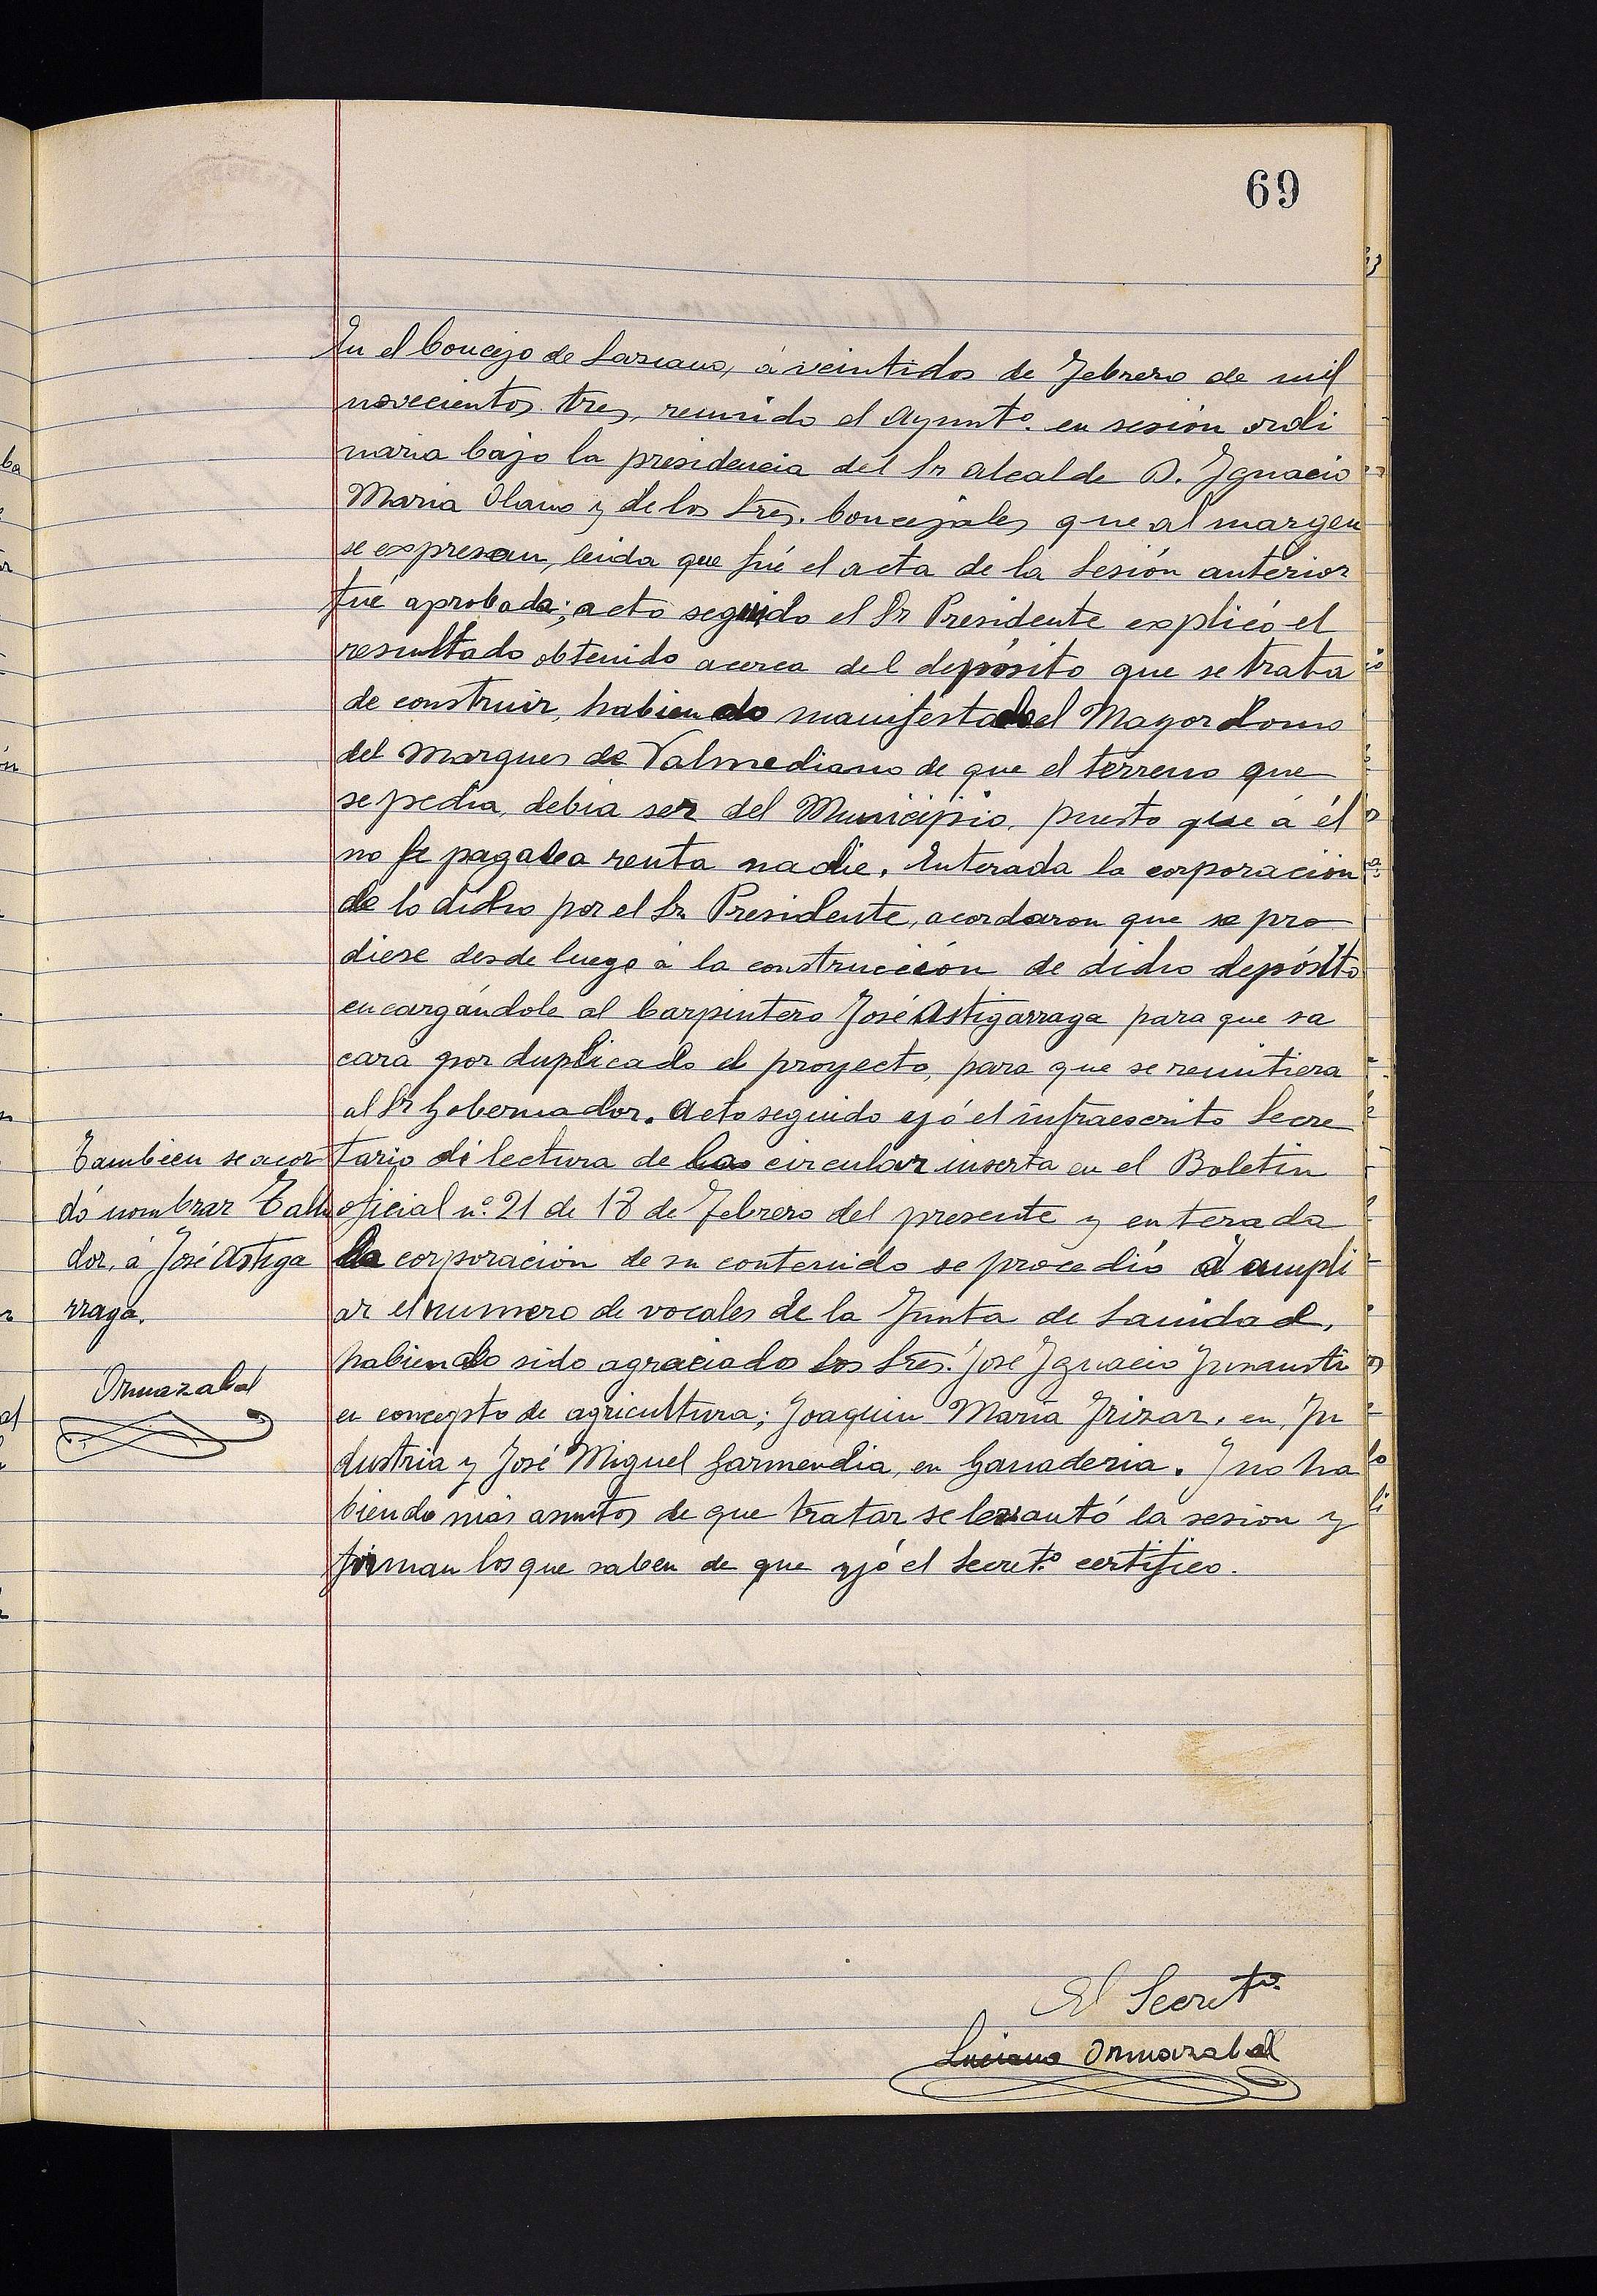 69
En el Concejo de Lazcano, á veintidos de Febrero de mil
novecientos tres, reunido el Ayunto. en sesión ordi
naria bajo la presidencia del Sr Alcalde D. Ignacio
Maria Olano y de los Sres. Concejales que al margen
se expresan, leida que fué el acta de la Sesión anterior
fué aprobada; acto seguido el Sr Presidente explicó el
resultado obtenido acerca del depósito que se trata
de construir, habiendo manifestado el Mayordomo
del Marques de Valmediano de que el terreno que
se pedia, debia ser del Municipio, puesto que á él
no le pagaba renta nadie. Enterada la corporación
de lo dicho por el Sr Presidente, acordaron que se pro
diese desde luego á la construcción de dicho depósito
encargándole al Carpintero José Astigarraga para que sa
cara por duplicado el proyecto, para que se remitiera
al Sr Gobernador. Acto seguido yó el infraescrito Secre
tario di lectura de la circular inserta en el Boletin
oficial nº. 21 de 18 de Febrero del presente y enterada
la corporación de su contenido se procedió á ampli
ar el numero de vocales de la Junta de Sanidad,
habiendo sido agraciados los Sres. José Ignacio Insausti
en concepto de agricultura; Joaquin Maria Irizar, en In
dustria y José Miguel Garmendia, en Ganaderia. Y no ha
biendo más asuntos de que tratar se levantó la sesion y
firman los que saben de que yó el Secretº. certifico.
Tambien se acor
dó nombrar Talla
dor, á José Astiga
rraga.
Ormazabal
El Secretº.
Luciano Ormazabal